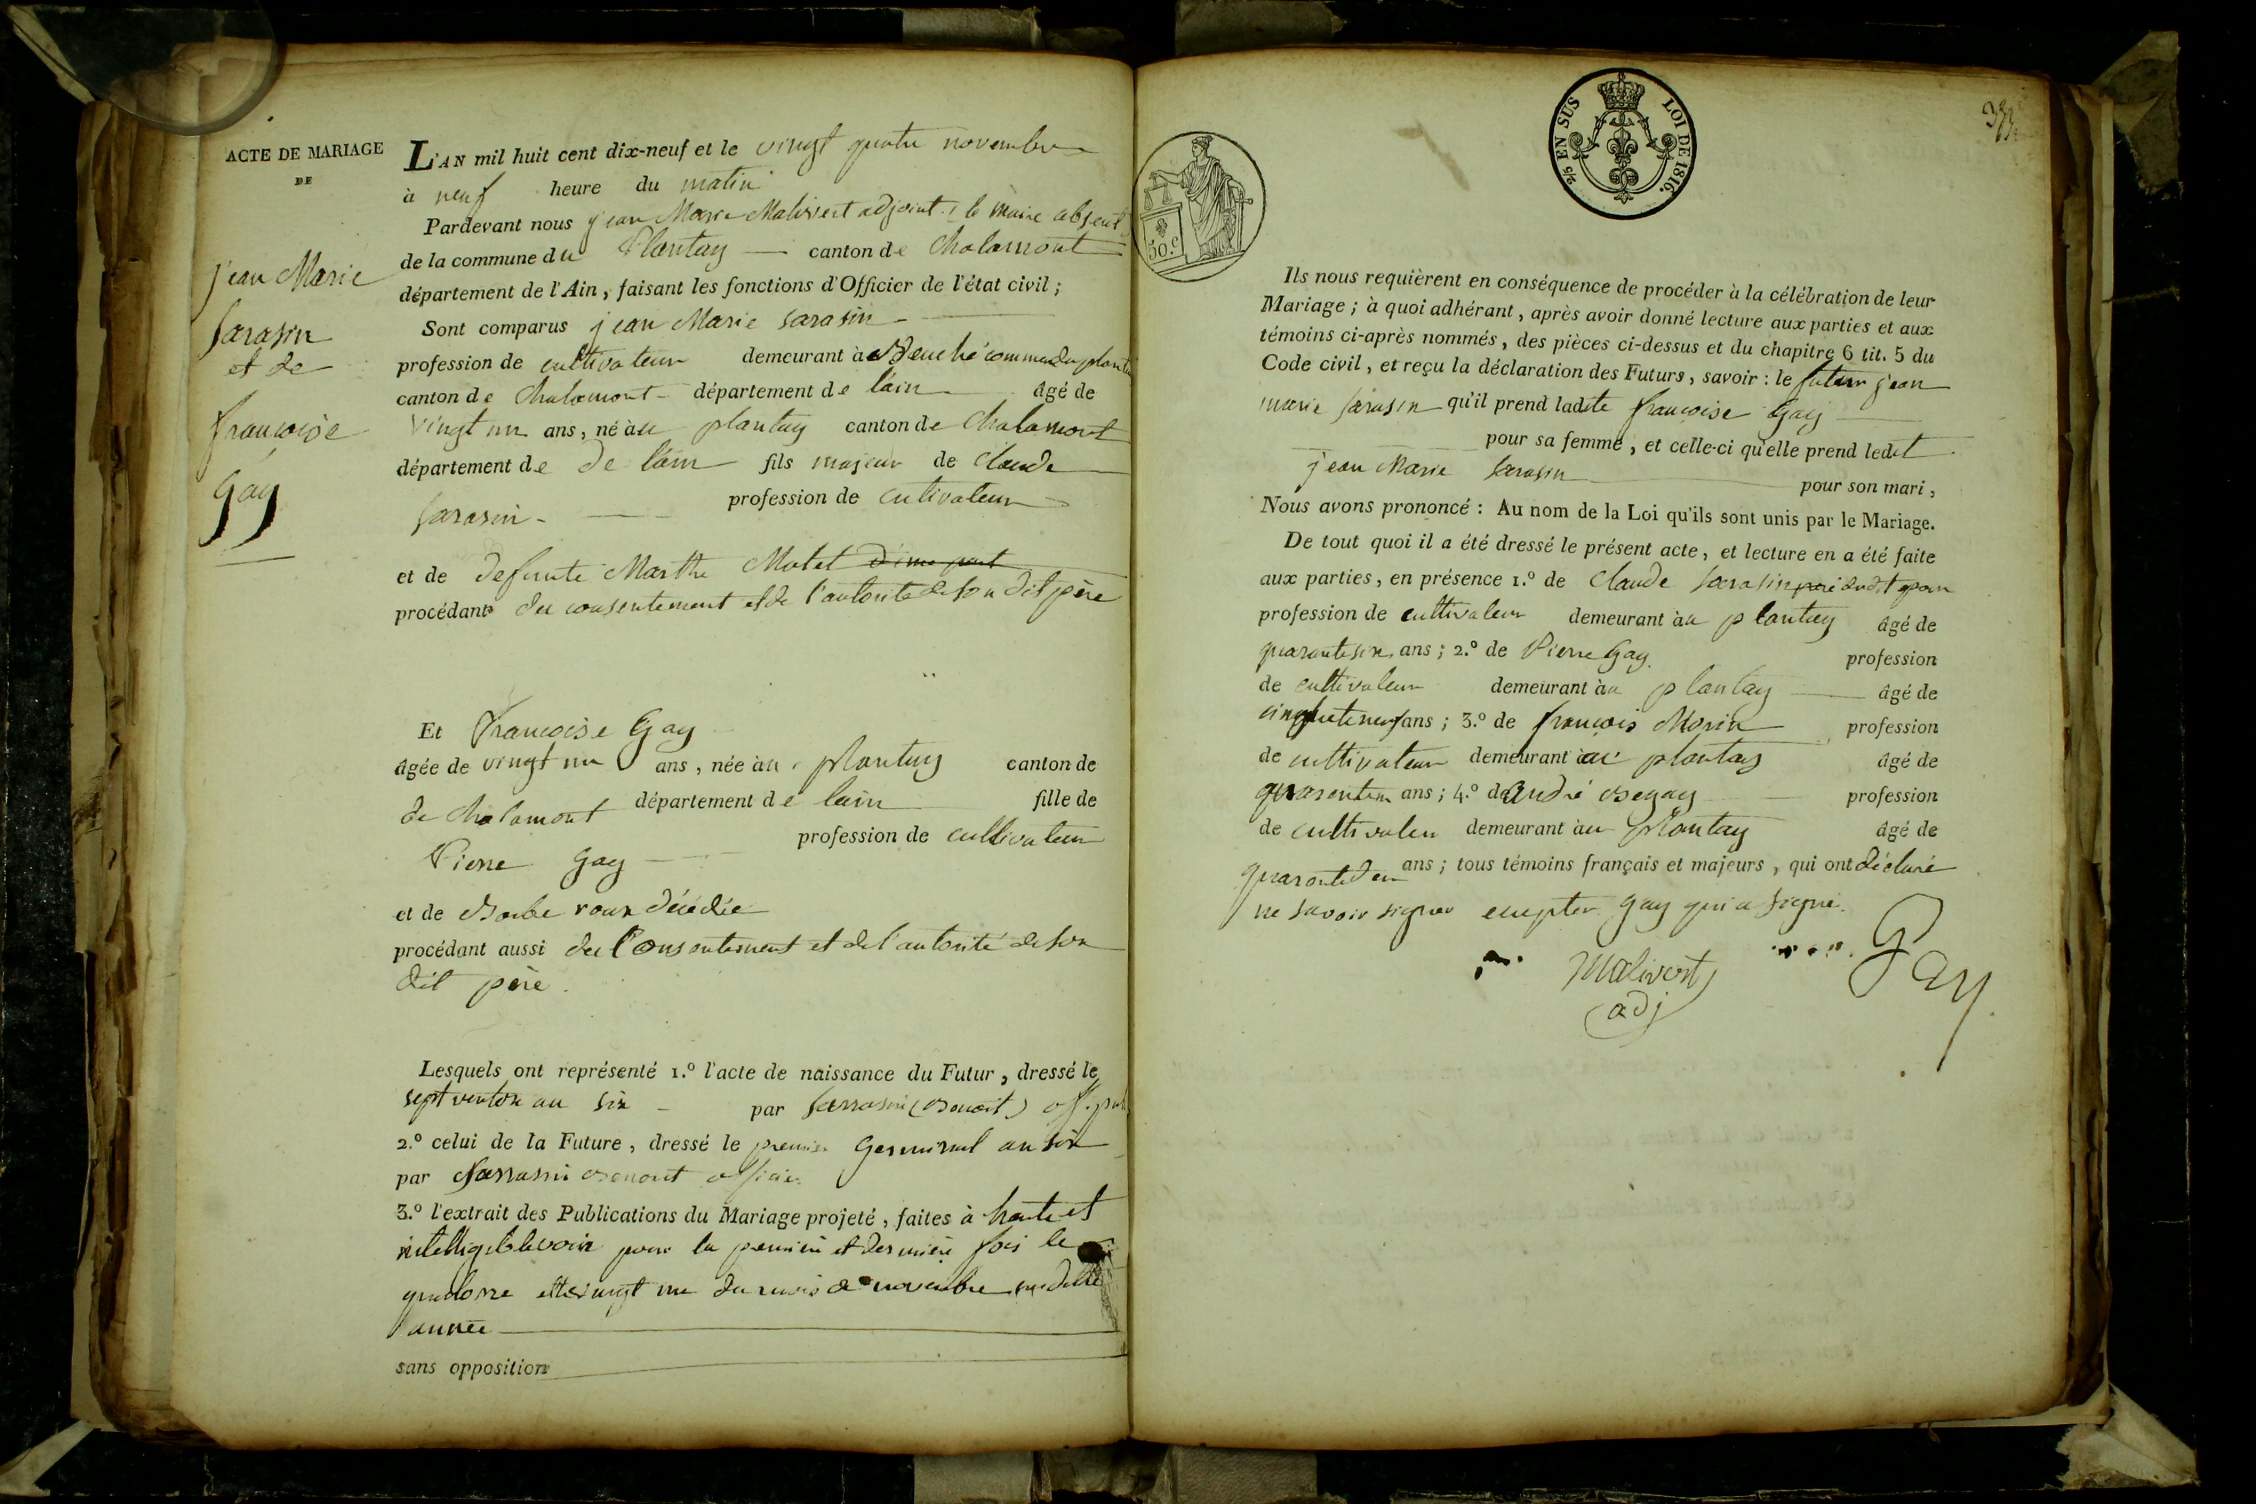 ACTE DE MARIAGE
DE
jean Marie
Sarasin
et de
françoise
Gay
L'AN mil huit cent dix-neuf et le vingt quatre novembre
à neuf heure du matin
Pardevant nous jean Marie Malivert adjoint, le maire absent
de la commune du Plantay canton de Chalamont
département de l'Ain, faisant les fonctions d'Officier de l'état civil;
Sont comparus jean Marie Sarasin
profession de cultivateur demeurant à commune du plantai
canton de Chalamont département de lain âgé de
vingt un ans, né àu plantay canton de Chalamont
département de De lain fils majeur de Claude
Sarasin profession de cultivateur
et de defunte Marthe Motet d'une part
procédant du consentement et de l'autorité de son dit père
Et françoise Gay
âgée de vingt un ans, née àu plantay canton de
de chalamont département de lain fille de
Pierre Gay profession de cultivateur
et de Barbe roux décédée
procédant aussi du Consentement et de l'autorité de son
dit père.
Lesquels ont représenté 1.º l'acte de naissance du Futur, dressé le
sept ventose an six par Sarrasin (Benoit) off. pub
2.º celui de la Future, dressé le premier Germinal an six
par Sarrasin Benoit officier
3.º l'extrait des Publications du Mariage projeté, faites à haute et
intelligible voix pour la premiere et derniere fois le
quatorze et le vingt un du mois de novembre
année
sans opposition
2/5 EN SUS LOI DE 1816.
50.c
Ils nous requièrent en conséquence de procéder à la célébration de leur
Mariage; à quoi adhérant, après avoir donné lecture aux parties et aux
témoins ci-après nommés, des pièces ci-dessus et du chapitre 6 tit. 5 du
Code civil, et reçu la déclaration des Futurs, savoir: le futur jean
marie Sarasin qu'il prend ladite françoise Gay
pour sa femme, et celle-ci qu'elle prend ledit
jean Marie Sarasin pour son mari,
Nous avons prononcé: Au nom de la Loi qu'ils sont unis par le Mariage.
De tout quoi il a été dressé le présent acte, et lecture en a été faite
aux parties, en présence 1.º de Claude Sarasin
profession de cultivateur demeurant àu plantay âgé de
quarante six ans; 2.º de Pierre Gay profession
de cultivateur demeurant àu plantay âgé de
cinquante neuf ans; 3.º de françois Morin profession
de cultivateur demeurant àu plantay âgé de
ans; 4.º de André profession
de cultivateu demeurant àu plantay âgé de
quarante deux ans; tous témoins français et majeurs, qui ont déclaré
ne savoir signer excepter Gay qui a signé.
Malivert Gay
adj